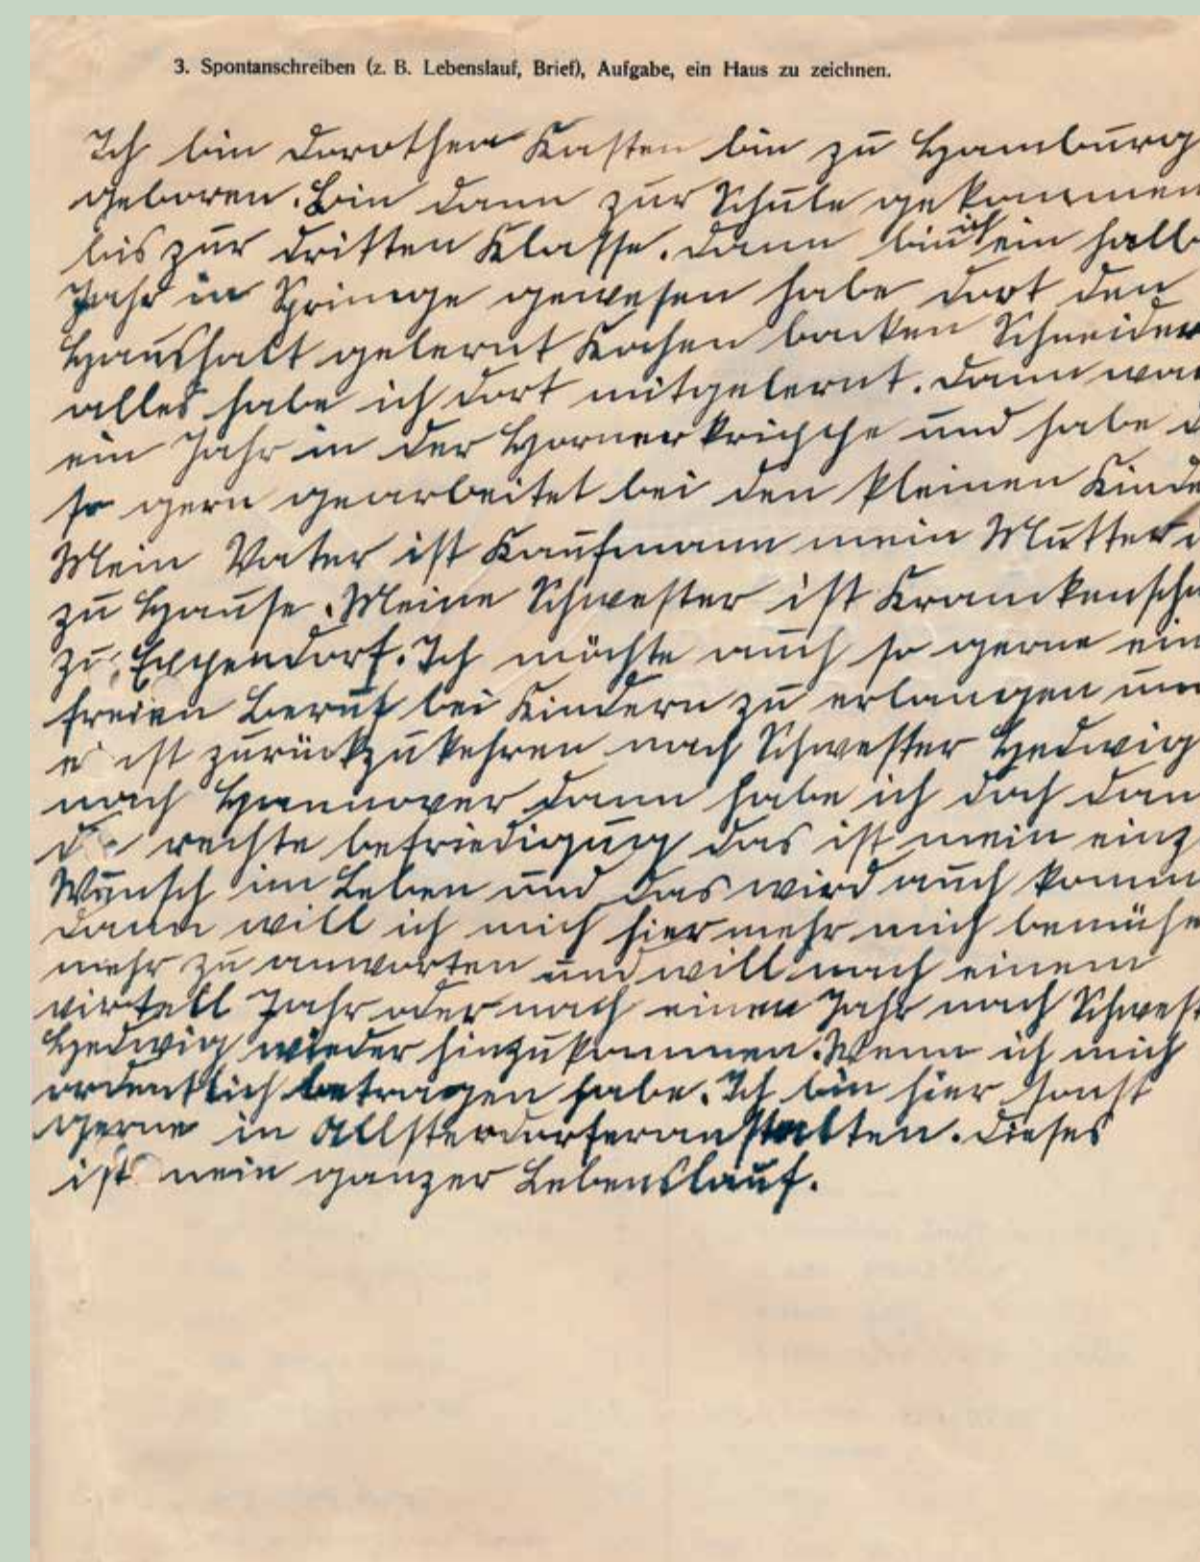 3. Spontanschreiben (z. B. Lebenslauf, Brief), Aufgabe, ein Haus zu zeichnen.
Ich bin Dorothea Kasten bin zu Hamburg
geboren. Bin dann zur Schule gekommen
bis zur dritten Klasse. Dann bin ich ein halb
Jahr in Springe gewesen habe dort den
Haushalt gelernt Kochen backen Schneider
alles habe ich dort mitgelernt. Dann war
ein Jahr in der Hornerkrichche und habe
so gern gearbeitet bei den kleinen Kinde
Mein Vater ist Kaufmann mein Mutter
zu Hause. Meine Schwester ist Kranckensch
zu Eppendorf. Ich möchte auch so gerne ein
freien Beruf bei Kindern zu erlangen um
ist zurückzukehren nach Schwester Hedwig
nach Hannover dann habe ich doch dan
rechte befriedigung das ist mein einz
Wunsch im Leben und das wird auch komm
dann will ich mich hier mehr mich bemühe
mehr zu anworten und will nach einem
virtell Jahr oder nach einen Jahr nach Schwest
Hedwig wieder hinzukommen. Wenn ich mich
ordentlich betragen habe. Ich bin hier sonst
gerne in Allsterdorferanstalten. Dieses
ist mein ganzer Lebenslauf.